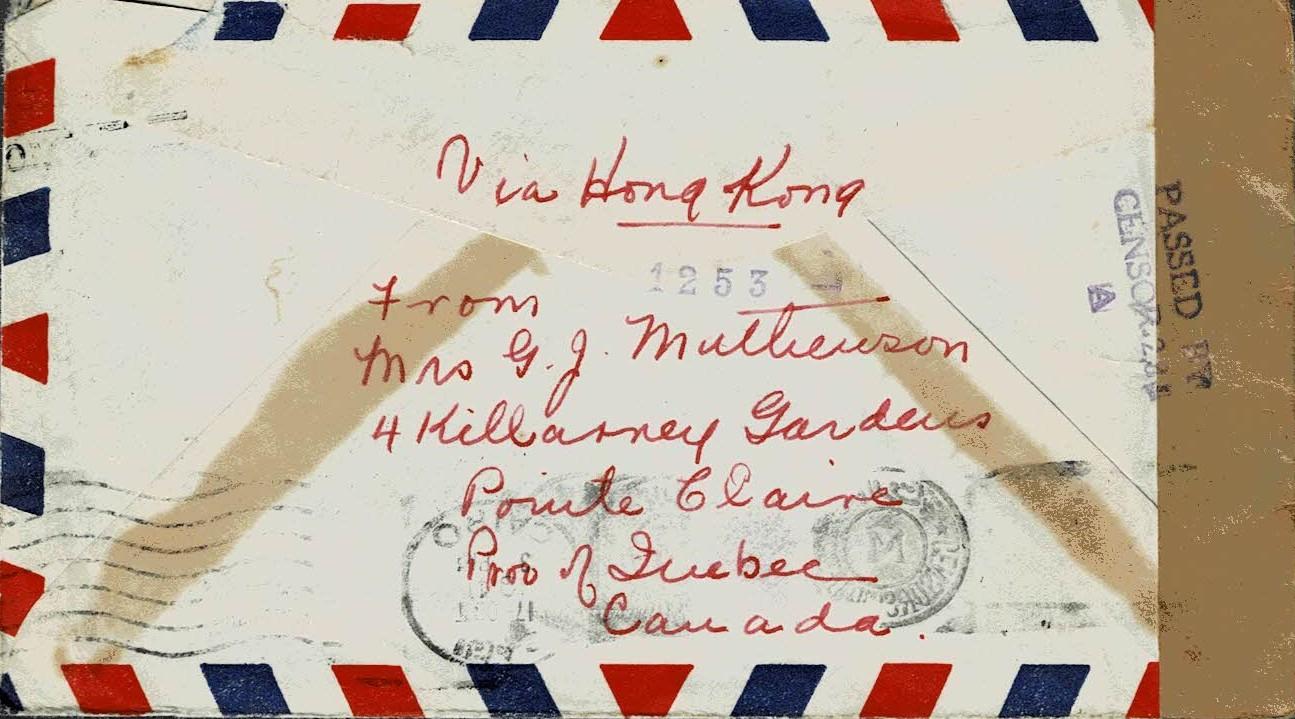 Via Hong Kong
1253
From
Mrs G. J. Mathewson
4 Killarney Gardens
Pointe Claire
Prov of Quebec
Canada.
PASSED BY
CENSOR
M